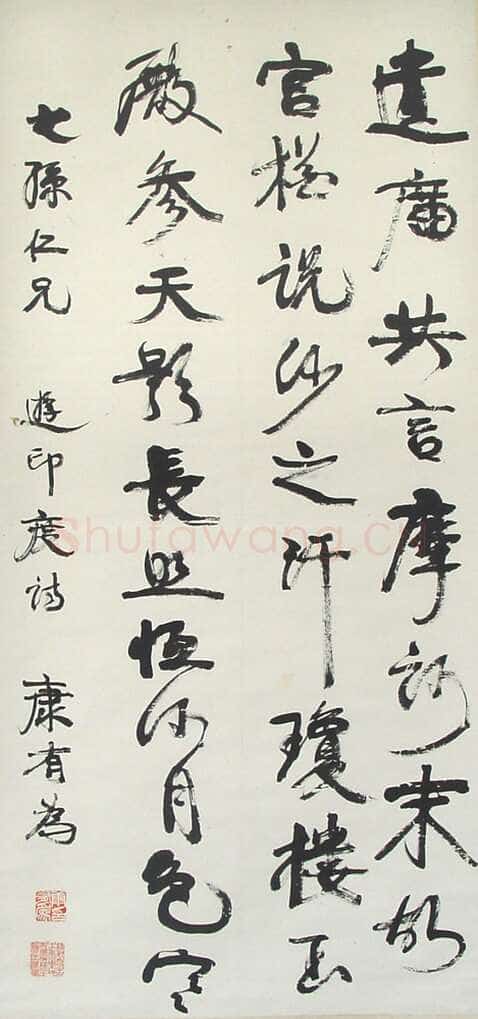 遺廟共言摩訶末故
宮說沙之汗瓊樓玉
殿參天影長照恒河月色寒
七孫仁兄 遊印度詩 康有為
Shufawang.cn